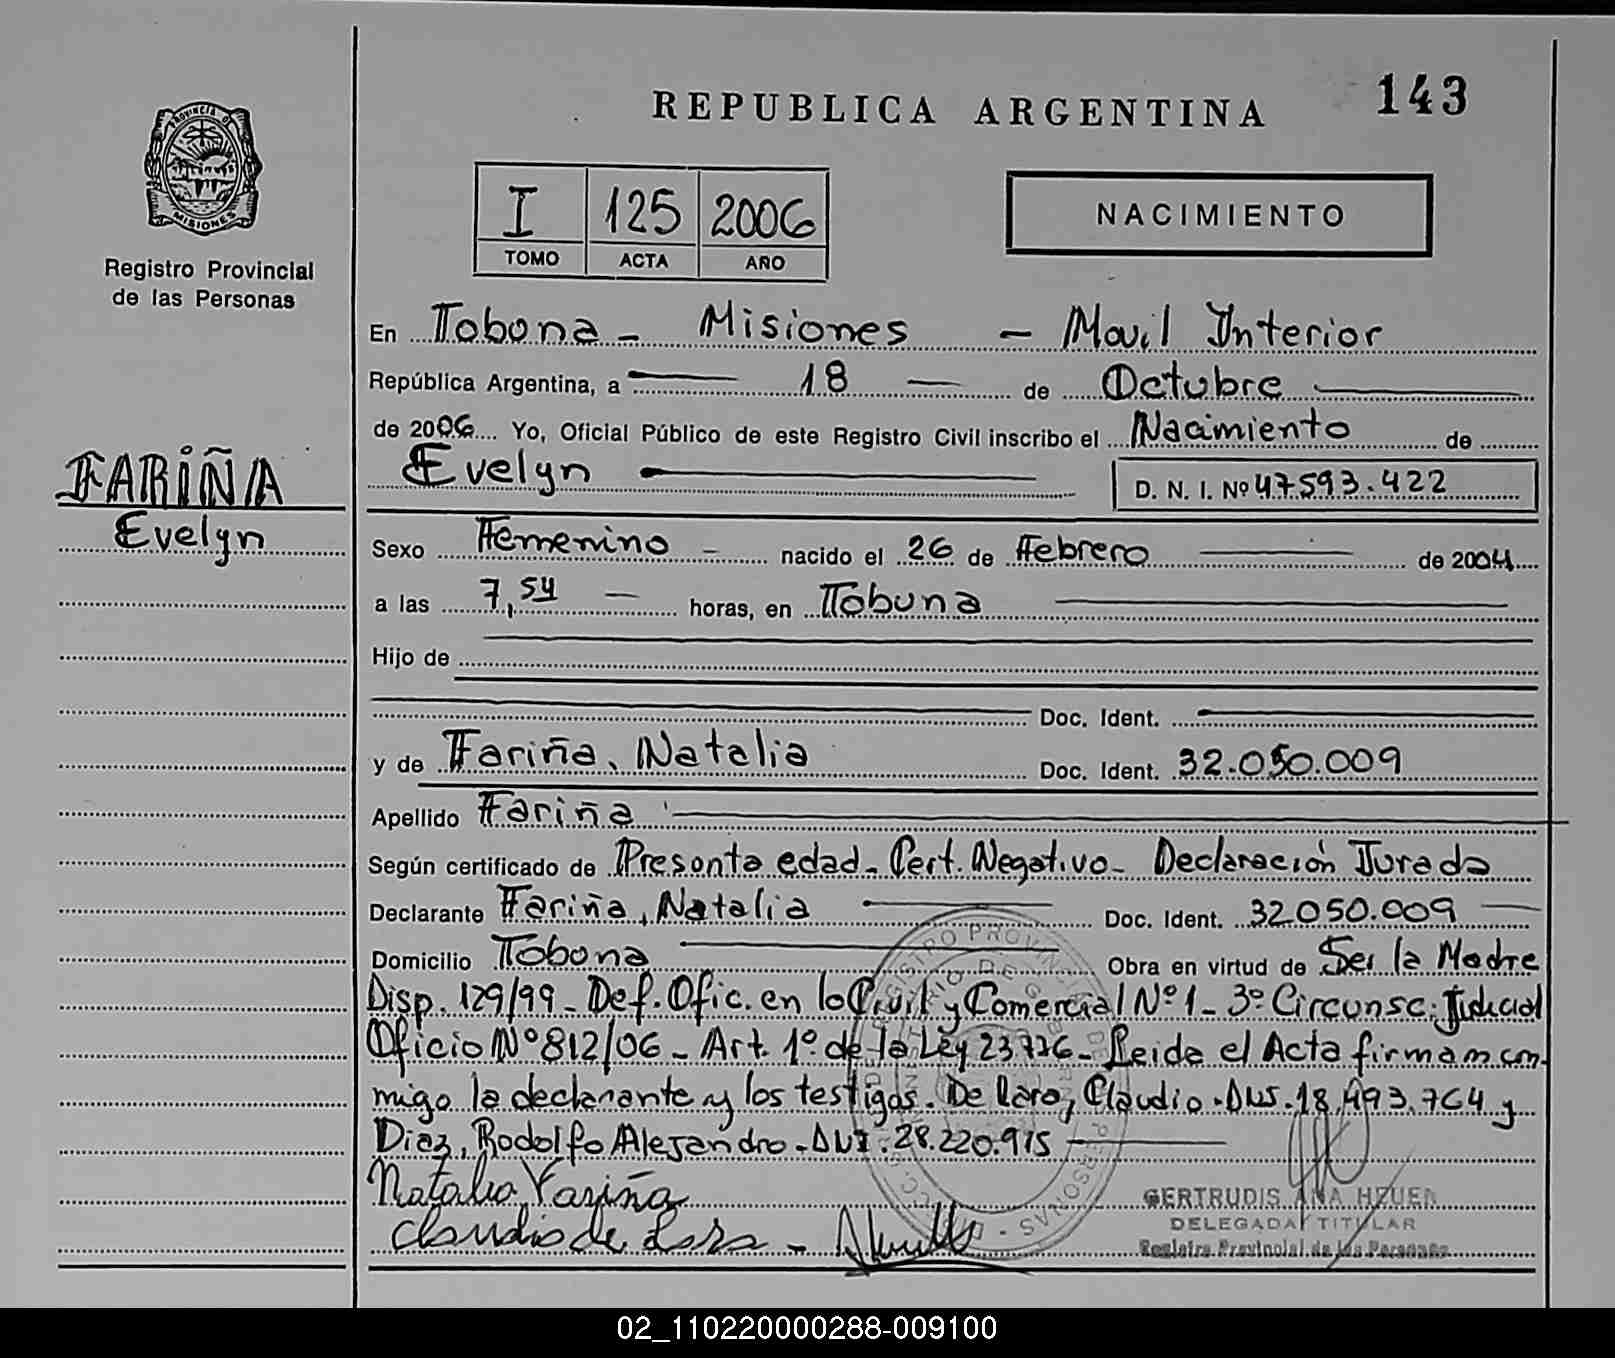 143
REPUBLICA ARGENTINA
PROVINCIA D
MISIONES
Registro Provincial
de las Personas
I 125 2006
TOMO ACTA AÑO
NACIMIENTO
En Tobona - Misiones - Movil Interior
República Argentina, a 18 de Octubre
de 2006 Yo, Oficial Público de este Registro Civil inscribo el Nacimiento de
FARIÑA
Evelyn
Evelyn D. N. I. Nº 47593.422
Sexo Femenino - nacido el 26 de Febrero de 2004
a las 7,54 - horas, en Tobuna
Hijo de
Doc. Ident.
y de Fariña, Natalia Doc. Ident. 32.050.009
Apellido Fariña
Según certificado de Presonta edad - Cert. Negativo - Declaración Jurada
Declarante Fariña, Natalia Doc. Ident. 32.050.009
Domicilio Tobona Obra en virtud de Ser la Madre
Disp. 129/99 - Def. Ofic. en lo Civil y Comercial Nº 1 - 3º Circunsc. Judicial
Oficio Nº 812/06 - Art. 1º de la Ley 23776 - Leida el Acta firman con-
migo la declarante y los testigos. De Lara, Claudio - DNI. 18.493.764 y
Diaz, Rodolfo Alejandro - DNI: 28.220.915
Natalia Fariña
Claudio de Lara -
GERTRUDIS ANA HEUER
DELEGADA TITULAR
Registro Provincial de las Personas
02_110220000288-009100